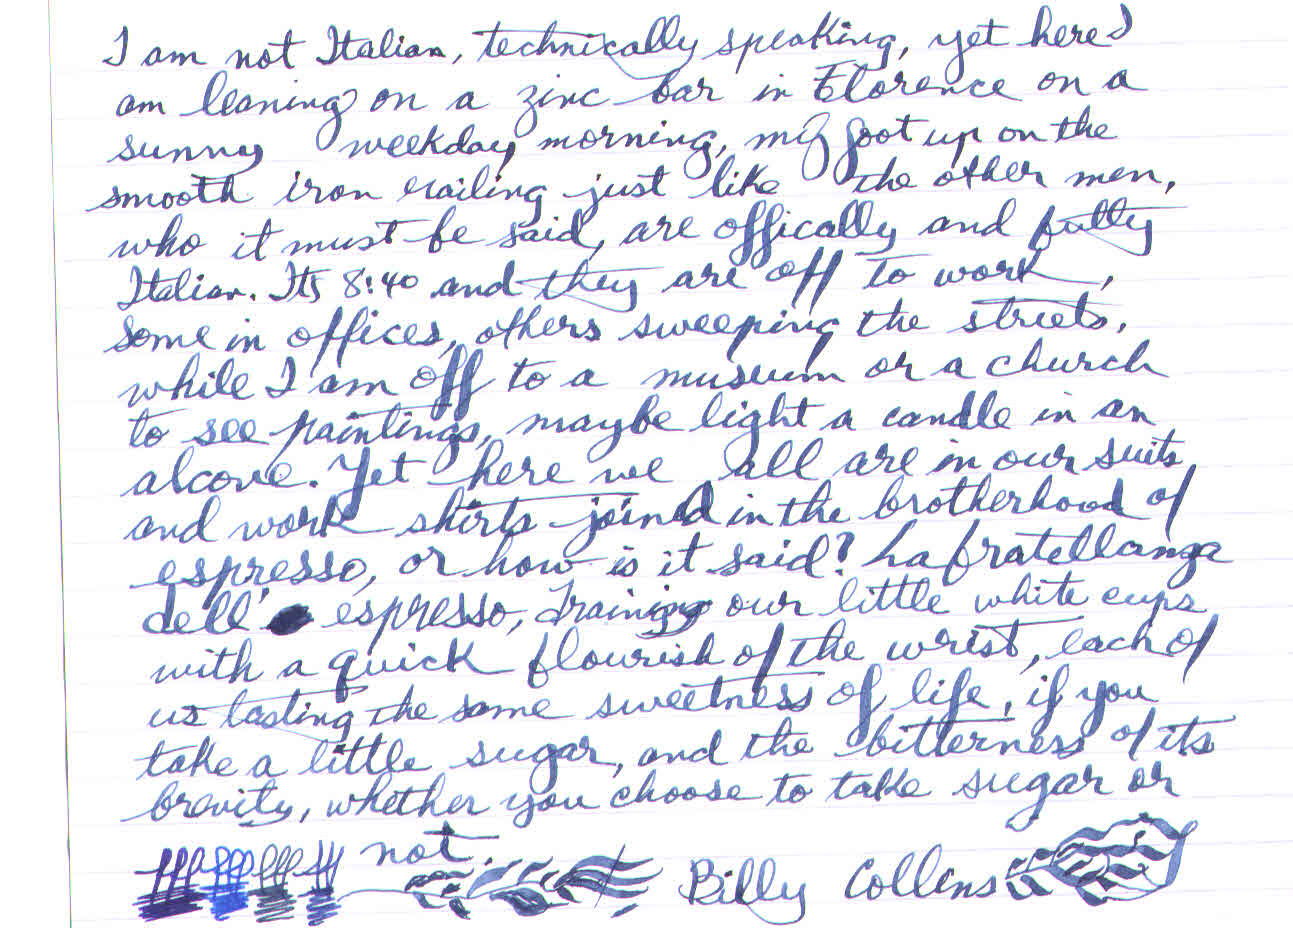 I am not Italian, technically speaking, yet here I
am leaning on a zinc bar in Florence on a
sunny weekday morning, my foot up on the
smooth iron railing just like the other men,
who it must be said, are offically and fully
Italian. Its 8:40 and they are off to work,
some in offices, others sweeping the streets,
while I am off to a museum or a church
to see paintings, maybe light a candle in an
alcove. Yet here we all are in our suits
and work shirts joined in the brotherhood of
espresso, or how is it said? La fratellanza
dell' espresso, draining our little white cups
with a quick flourish of the wrist, each of
us tasting the same sweetness of life, if you
take a little sugar, and the bitterness of its
brevity, whether you choose to take sugar or
not.
Billy Collins